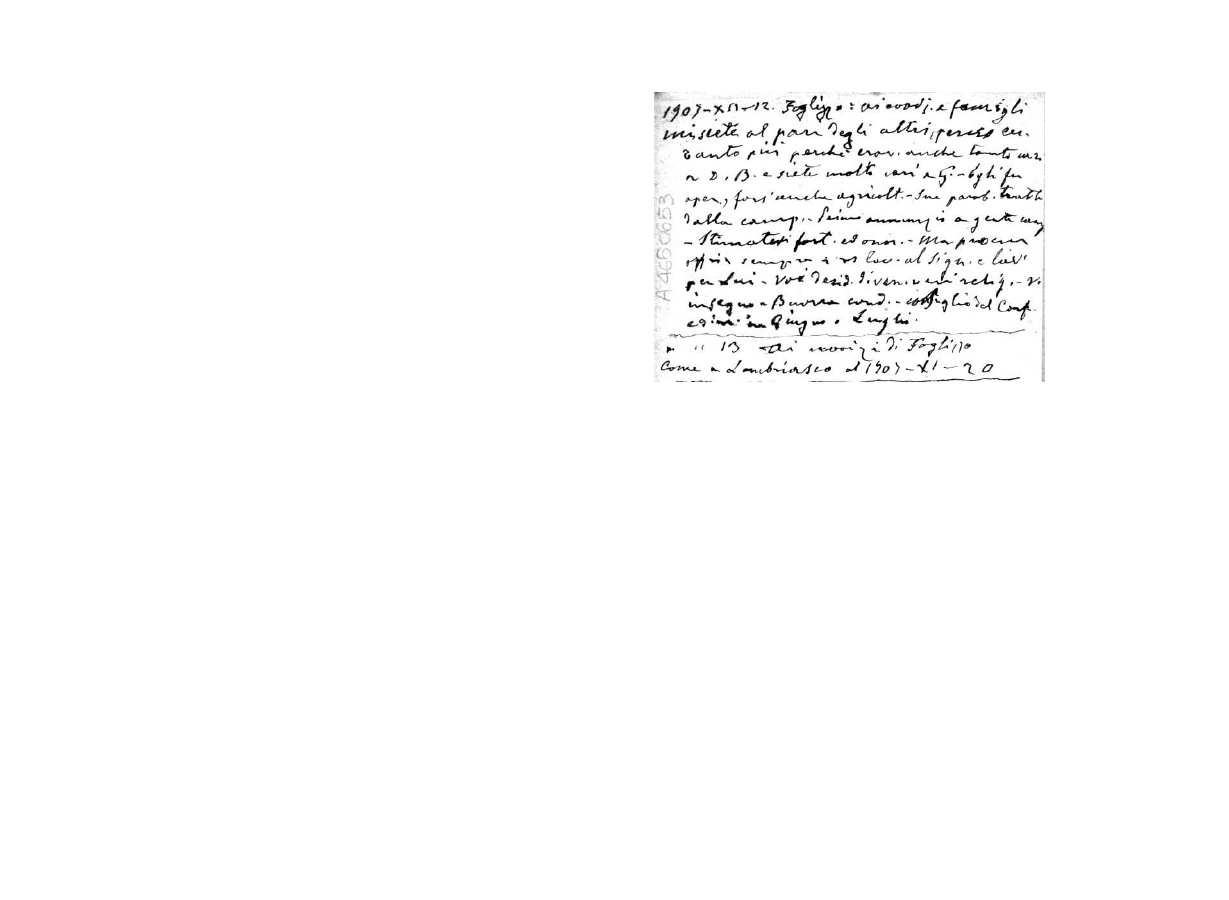 1907-XII-12. Foglizzo: ai coadj. e famigli
mi siete al pari degli altri,
tanto più perchè erav. anche tanto cari
a D. B. e siete molto cari a G. - Egli fu
oper., fors'anche agricolt. - Sue parab. tratte
dalla camp. - Primo annunzio a gente camp
- Stimatevi fort. ed onor. - Ma procur
offrir sempre i vs lav. al Sign. e
per Lui - Voi desid. diven. veri relig. - Vi
insegno - Buona cond. - consiglio del Conf.
in Giugno e Luglio.
" " 13 Ai novizi di Foglizzo
Come a Lombriasco al 1907-XI-20
A4650653